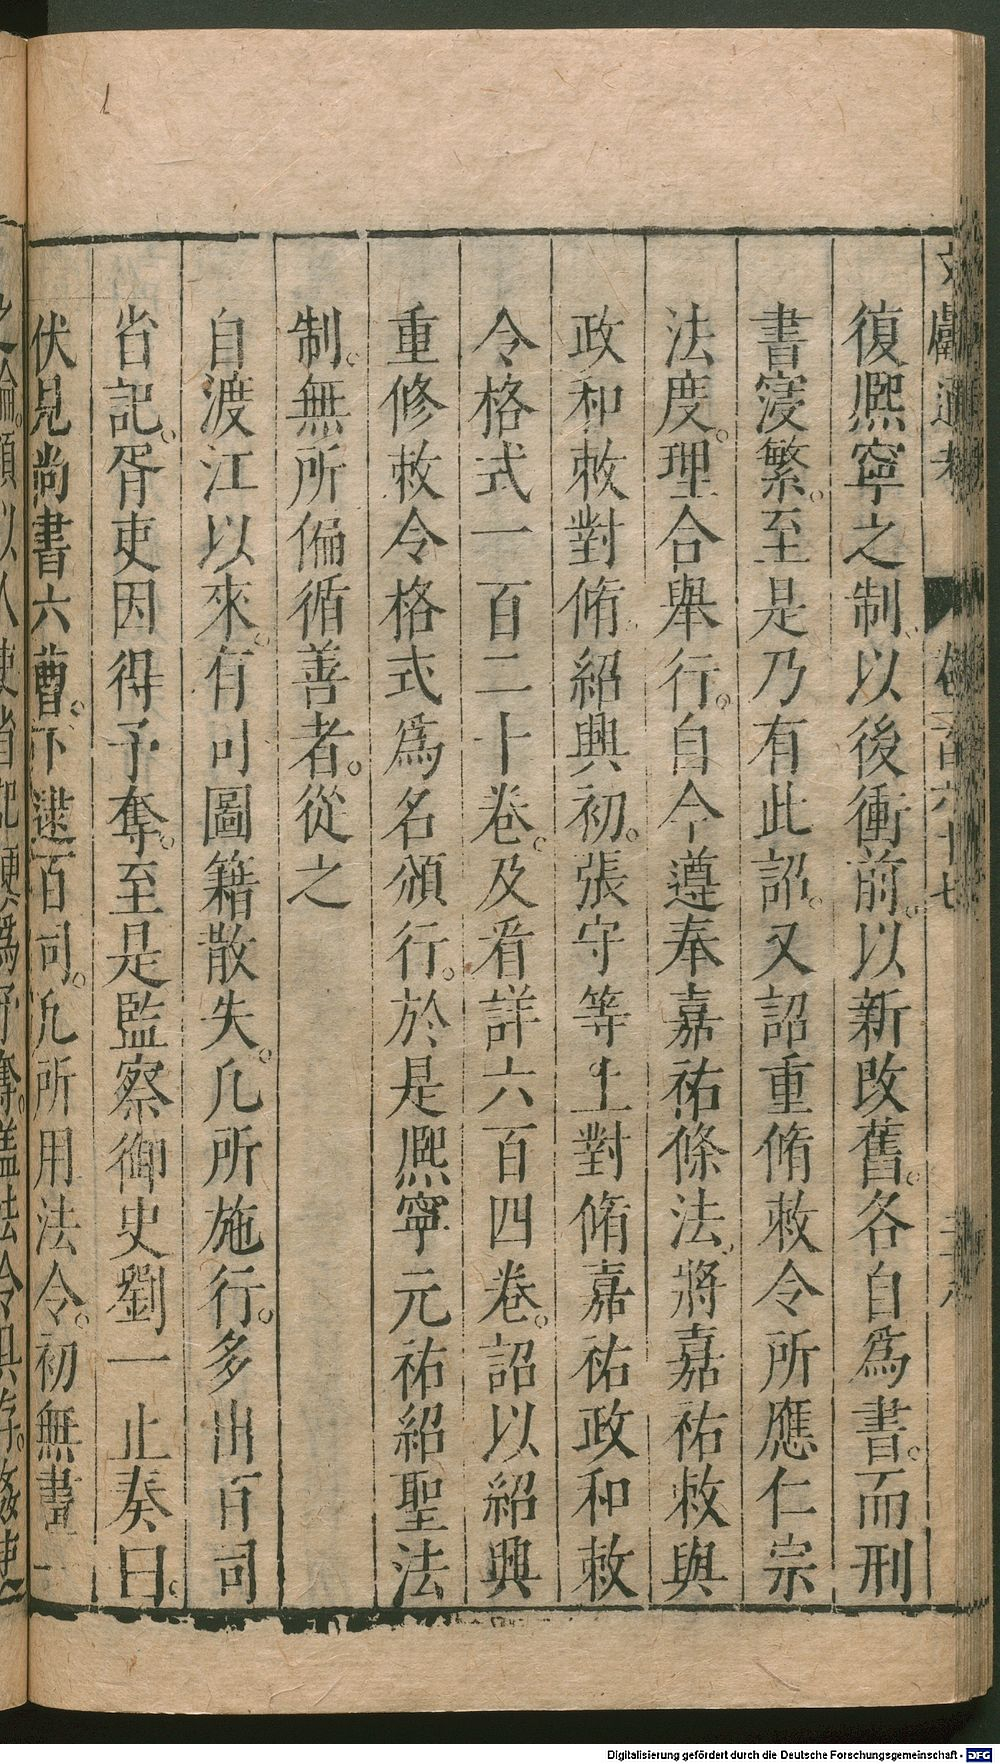 文獻通考 卷一百六十七
復熈寧之制以後衝前以新改舊各自為書而刑
書寖繁至是乃有此詔又詔重脩敕令所應仁宗
法度理合舉行自今遵奉嘉祐條法將嘉祐敕與
政和敕對脩紹興初張守等上對脩嘉祐政和敕
令格式一百二十卷及看詳六百四卷詔以紹興
重修敕令格式為名頒行於是熈寧元祐紹聖法
制無所偏循善者從之
自渡江以來有司圖籍散失凡所施行多出百司
省記胥吏因得予奪至是監察御史劉一止奏曰
伏見尚書六曹下逮百司凡所用法令初無畫一